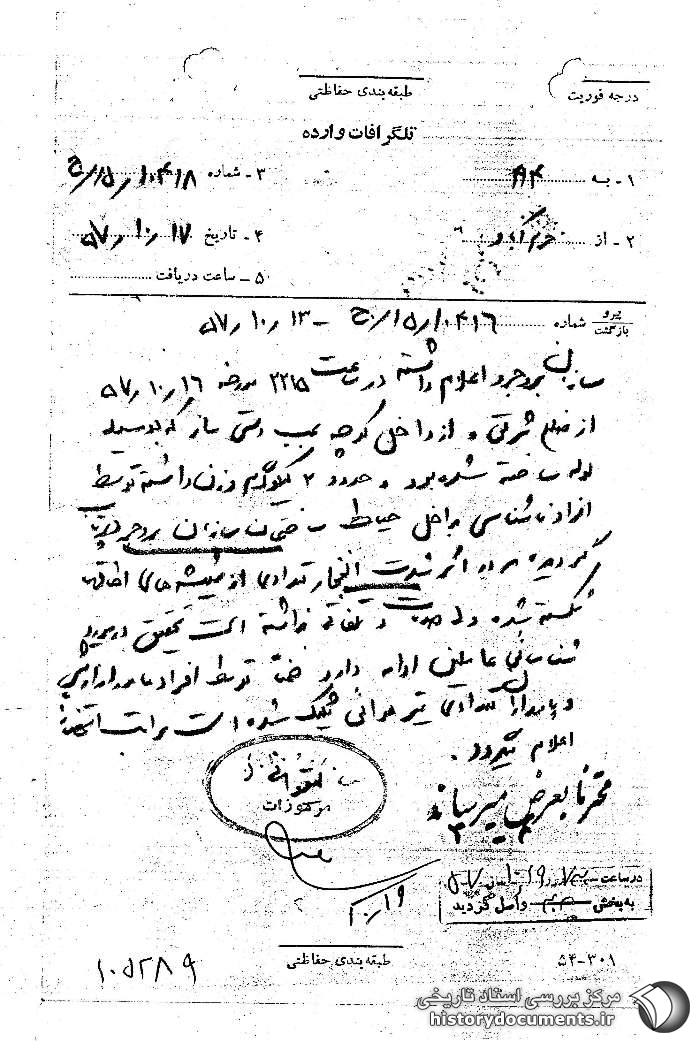 درجه فوریت
طبقه بندی حفاظتی
تلگرافات وارده
۱ - به ۸۳۴
۳ - شماره ۱۰۴۱۸ / ۱۵ / ج
۲ - از خرم آباد
۴ - تاریخ ۱۷ / ۱۰ / ۵۷
۵ - ساعت دریافت
پیرو
بازگشت
شماره ۱۰۴۱۶ / ۱۵ / ج - ۱۳ / ۱۰ / ۵۷
سازمان بروجرد اعلام داشته در ساعت ۲۲۱۵ مورخه ۱۶ / ۱۰ / ۵۷
از ضلع شرقی و از داخل کوچه بمب دستی ساز که بوسیله
لوله ساخته شده بود و حدود ۲ کیلوگرم وزن داشته توسط
افراد ناشناسی بداخل حیاط ساختمان سازمان بروجرد پرتاب
گردیده در اثر شدت انفجار تعدادی از شیشه های اطاقها
شکسته شده ولی صدمات و تلفاتی نداشته است تحقیق در مورد
شناسائی عاملین ادامه دارد ضمناً توسط افراد مامور
و پاسداران تعدادی تیر هوائی شلیک شده است مراتب
اعلام گردد .
محترما بعرض میرساند
مرموزات
۱۰/۱۹
در ساعت
به بخش واصل گردید
طبقه بندی حفاظتی
۵۴-۳۰۱
۱۰۵۲۸۹
مرکز بررسی اسناد تاریخی
historydocuments.ir